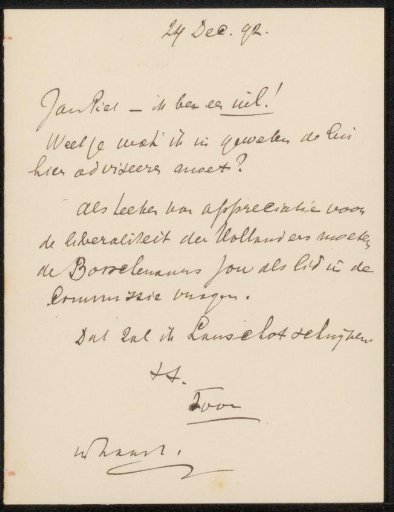 24 Dec. 92.
Jan Piet — ik ben er uit!
Weet je wat ik in geweten de lui
hier adviseeren moet?
Als teeken van appreciatie voor
de liberaliteit der Hollanders moeten
de Bosschenaars jou als lid in de
Commissie vragen.
Dat zal ik Lanschot schrijven
tt.
Toon
in haast.